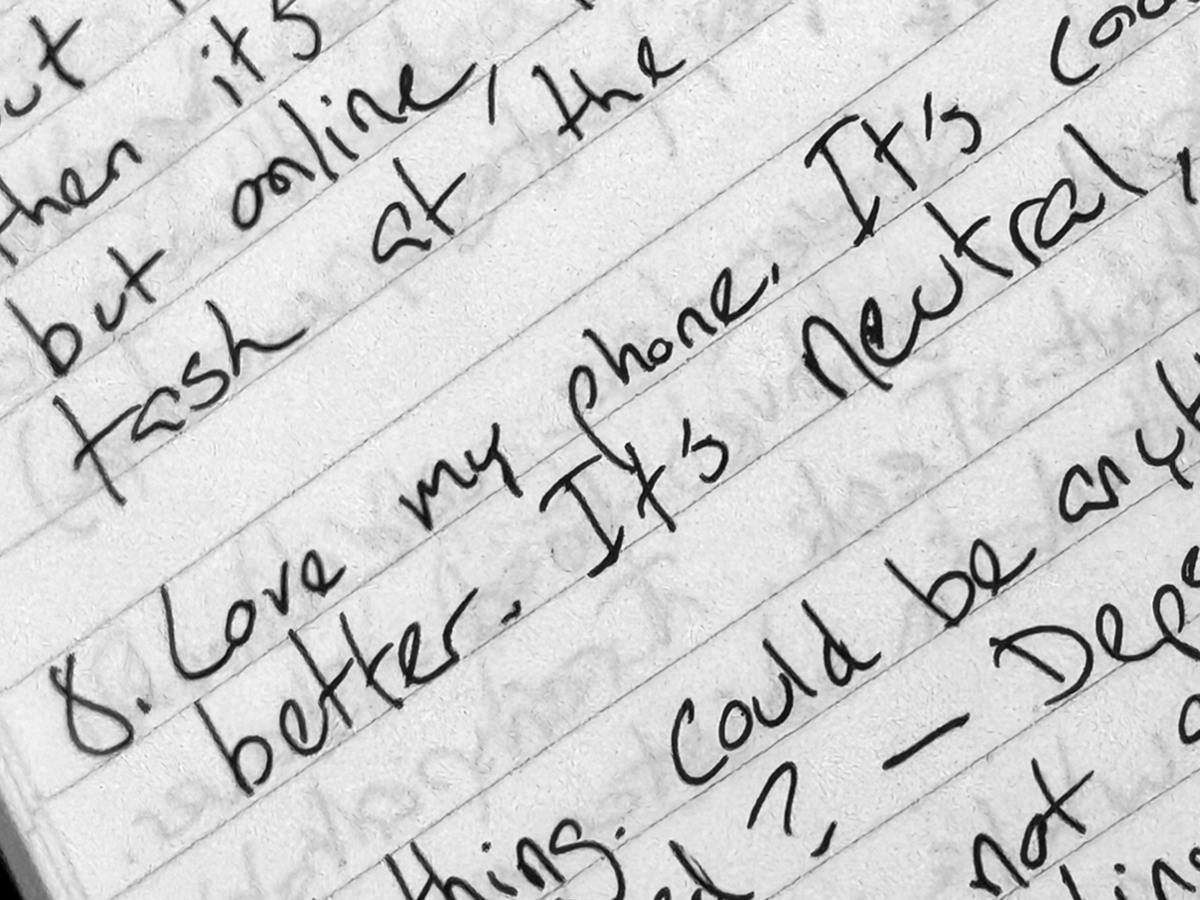 ut
then its
but online,
tash at the
8. Love my phone. It's
better. It's neutral,
thing. Could be
? –
not